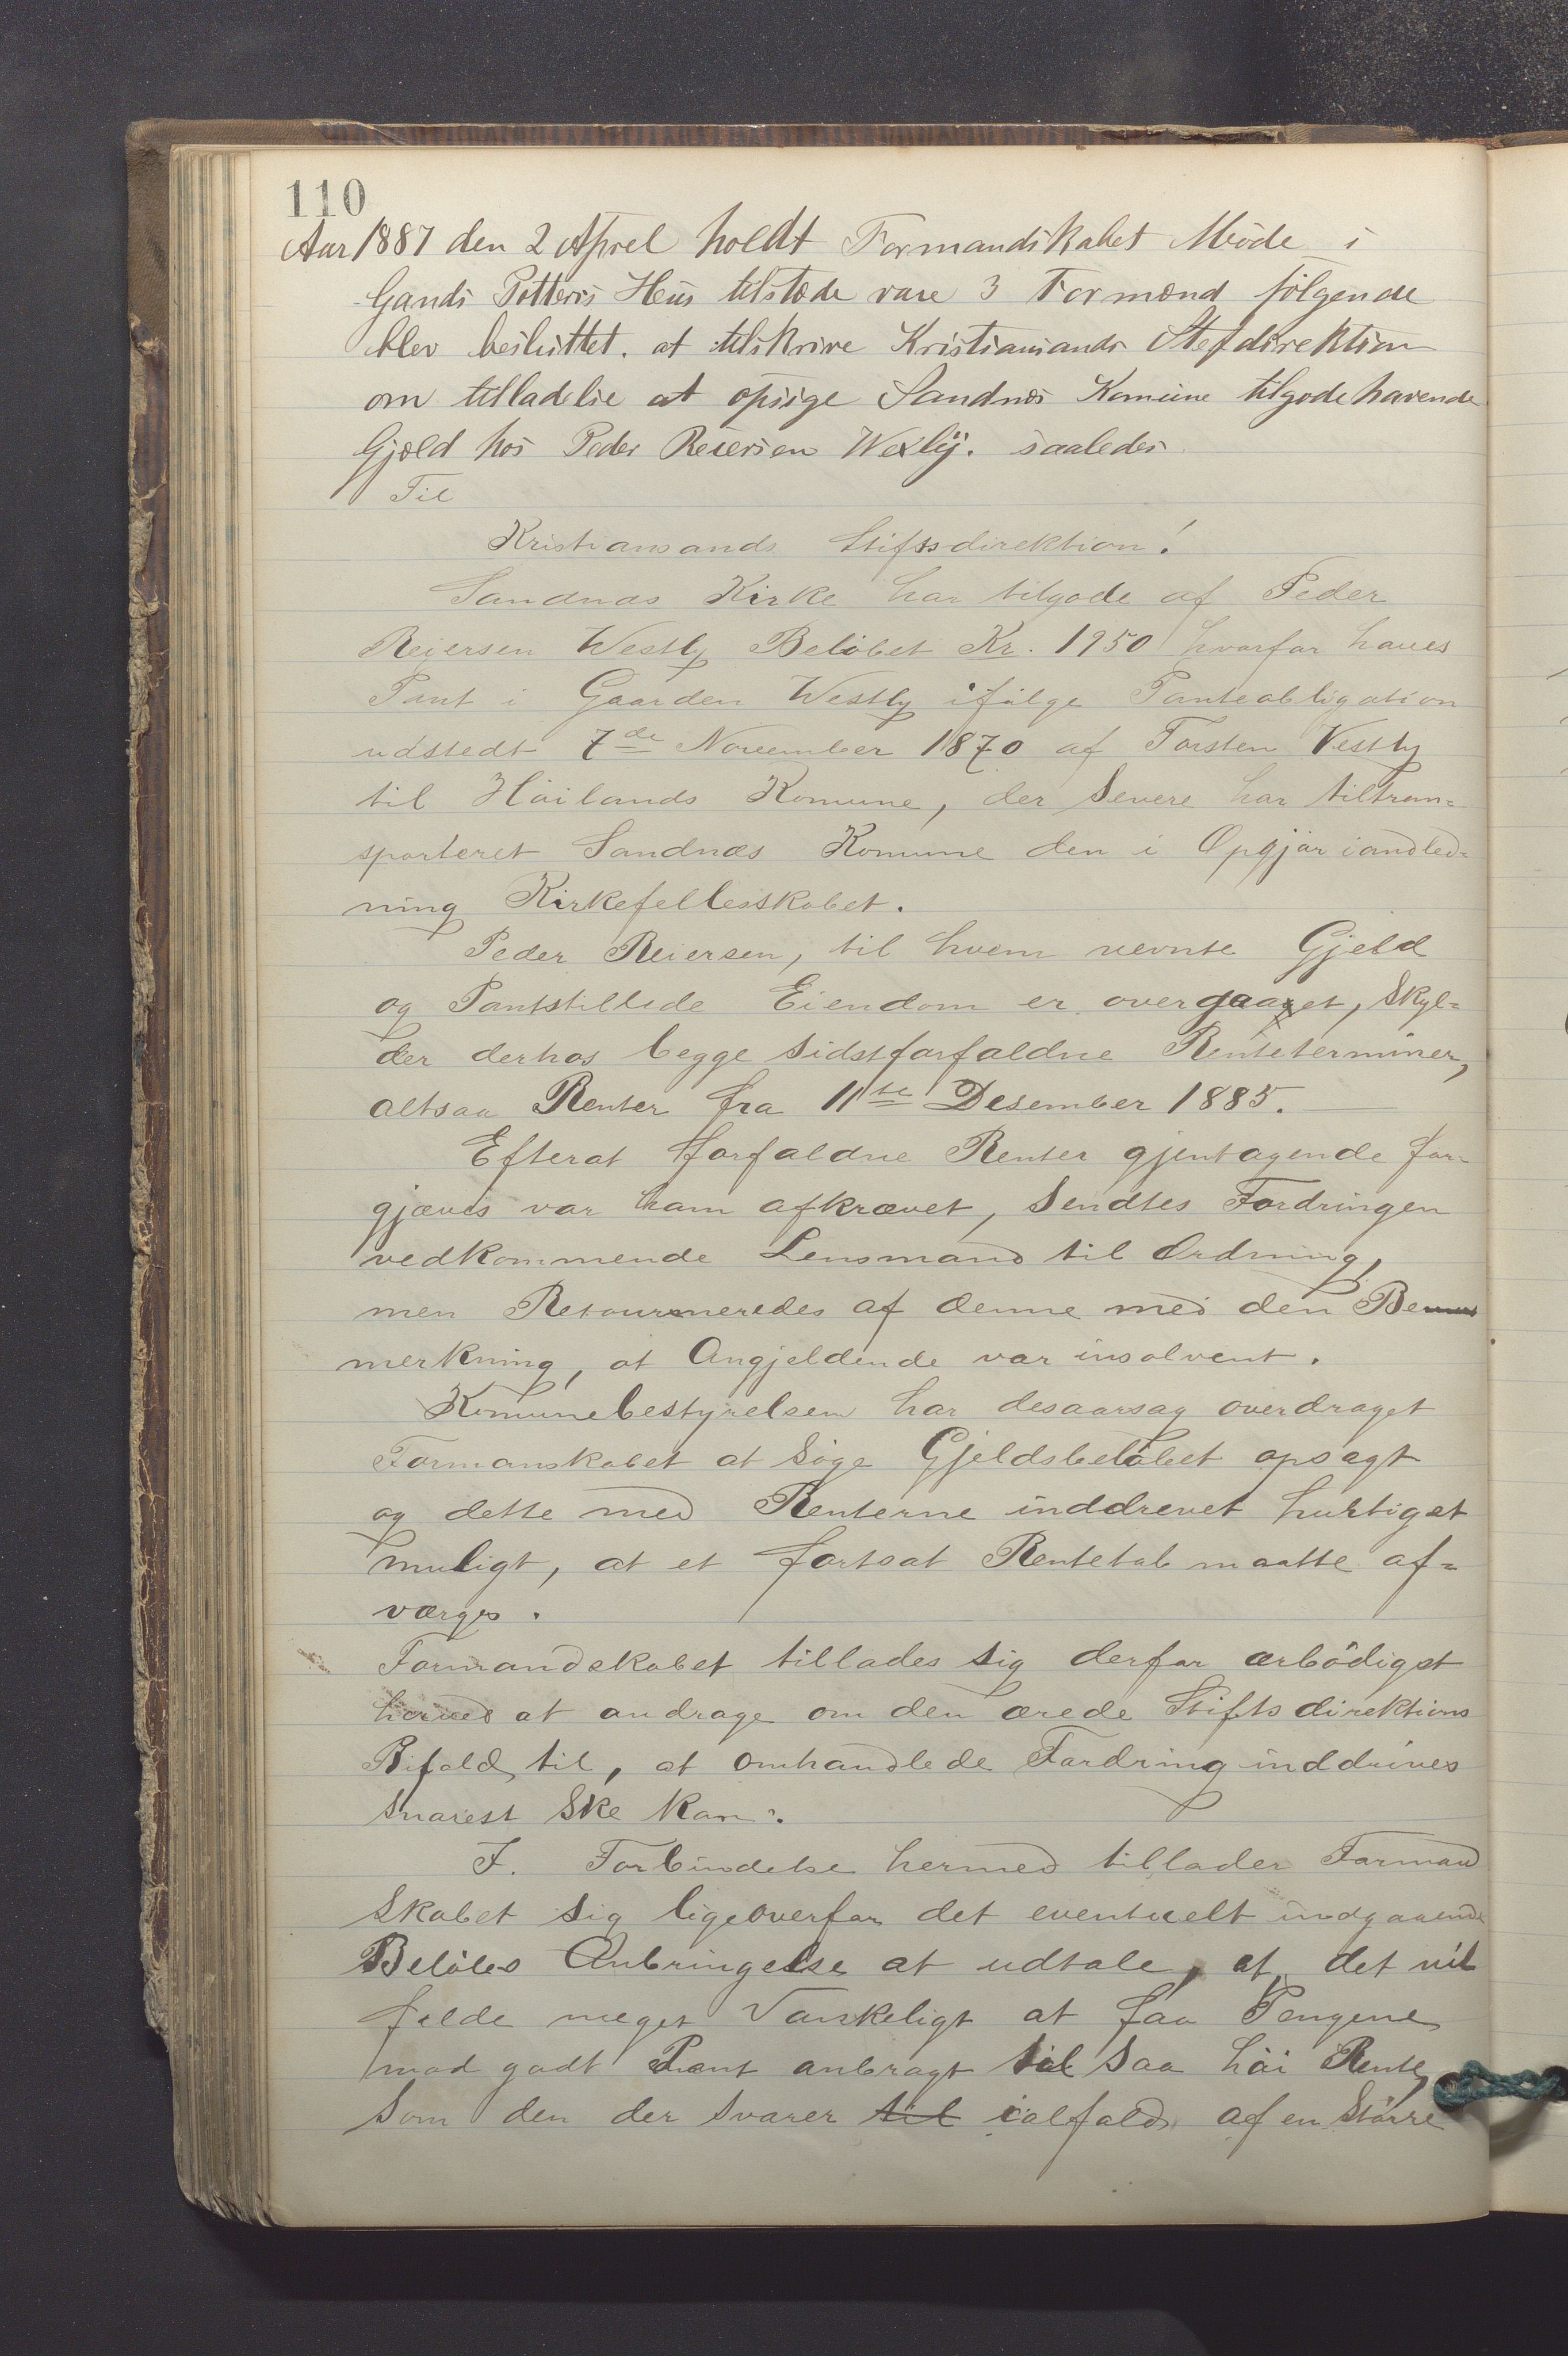 110
Aar 1887 den 2 Aprel holdt Formandskabet Möde i
Gands Potteris Hus tilstede vare 3 Formænd fölgende
blev besluttet. at tilskrive Kristiansands Stefdirektion
om tilladelse at opsige Sandnæs Komune tilgodehavende
Gjæld hos Peder Reiersen Wexly. saaledes
Til
Kristiansands Stifssdirektion!
Sandnæs Kirke har tilgode af Peder
Reiersen Westly Belöbet Kr. 1950 hvorfor haves
Pant i Gaarden Westly ifölge Panteobligation
udstedt 7de November 1870 af Torsten Vestly
til Höilands Komune, der senere har tiltran=
sporteret Sandnæs Komune den i Opgjör iandled=
ning Kirkefellesskabet.
Peder Reiersen, til hvem nevnte Gjeld
og Pantstillede Eiendom er overgaaet, skyl=
der derhos begge sidstforfaldne Renteterminer,
altsaa Renter fra 11te Desember 1885.
Efterat forfaldne Renter gjentagende for=
gjæves var ham afkrævet, sendtes Fordringen
vedkommende Lensmand til Ordning,
men Retourneredes af denne med den Be
merkning, at Angjeldende var insolvent.
Komunebestyrelsen har desaarsag overdraget
Formanskabet at söge Gjeldsbelöbet opsagt
og dette med Renterne inddrevet hurtigst
muligt, at et fortsat Rentetab maatte af=
værges.
Formandskabet tillades sig derfor ærbödigst
herved at andrage om den ærede Stiftsdirektions
Bifald til, at omhandlede Fordring inddrives
snarest ske kan.
I. Forbindelse hermed tillader Formand
skabet sig ligeoverfor det eventuelt indgaaende
Belöbs Anbringelse at udtale, at det vil
felde meget Vanskeligt at faa Pengene
mod godt Pant anbragt til saa höi Rente,
som den der svarer til ialfald af en Större